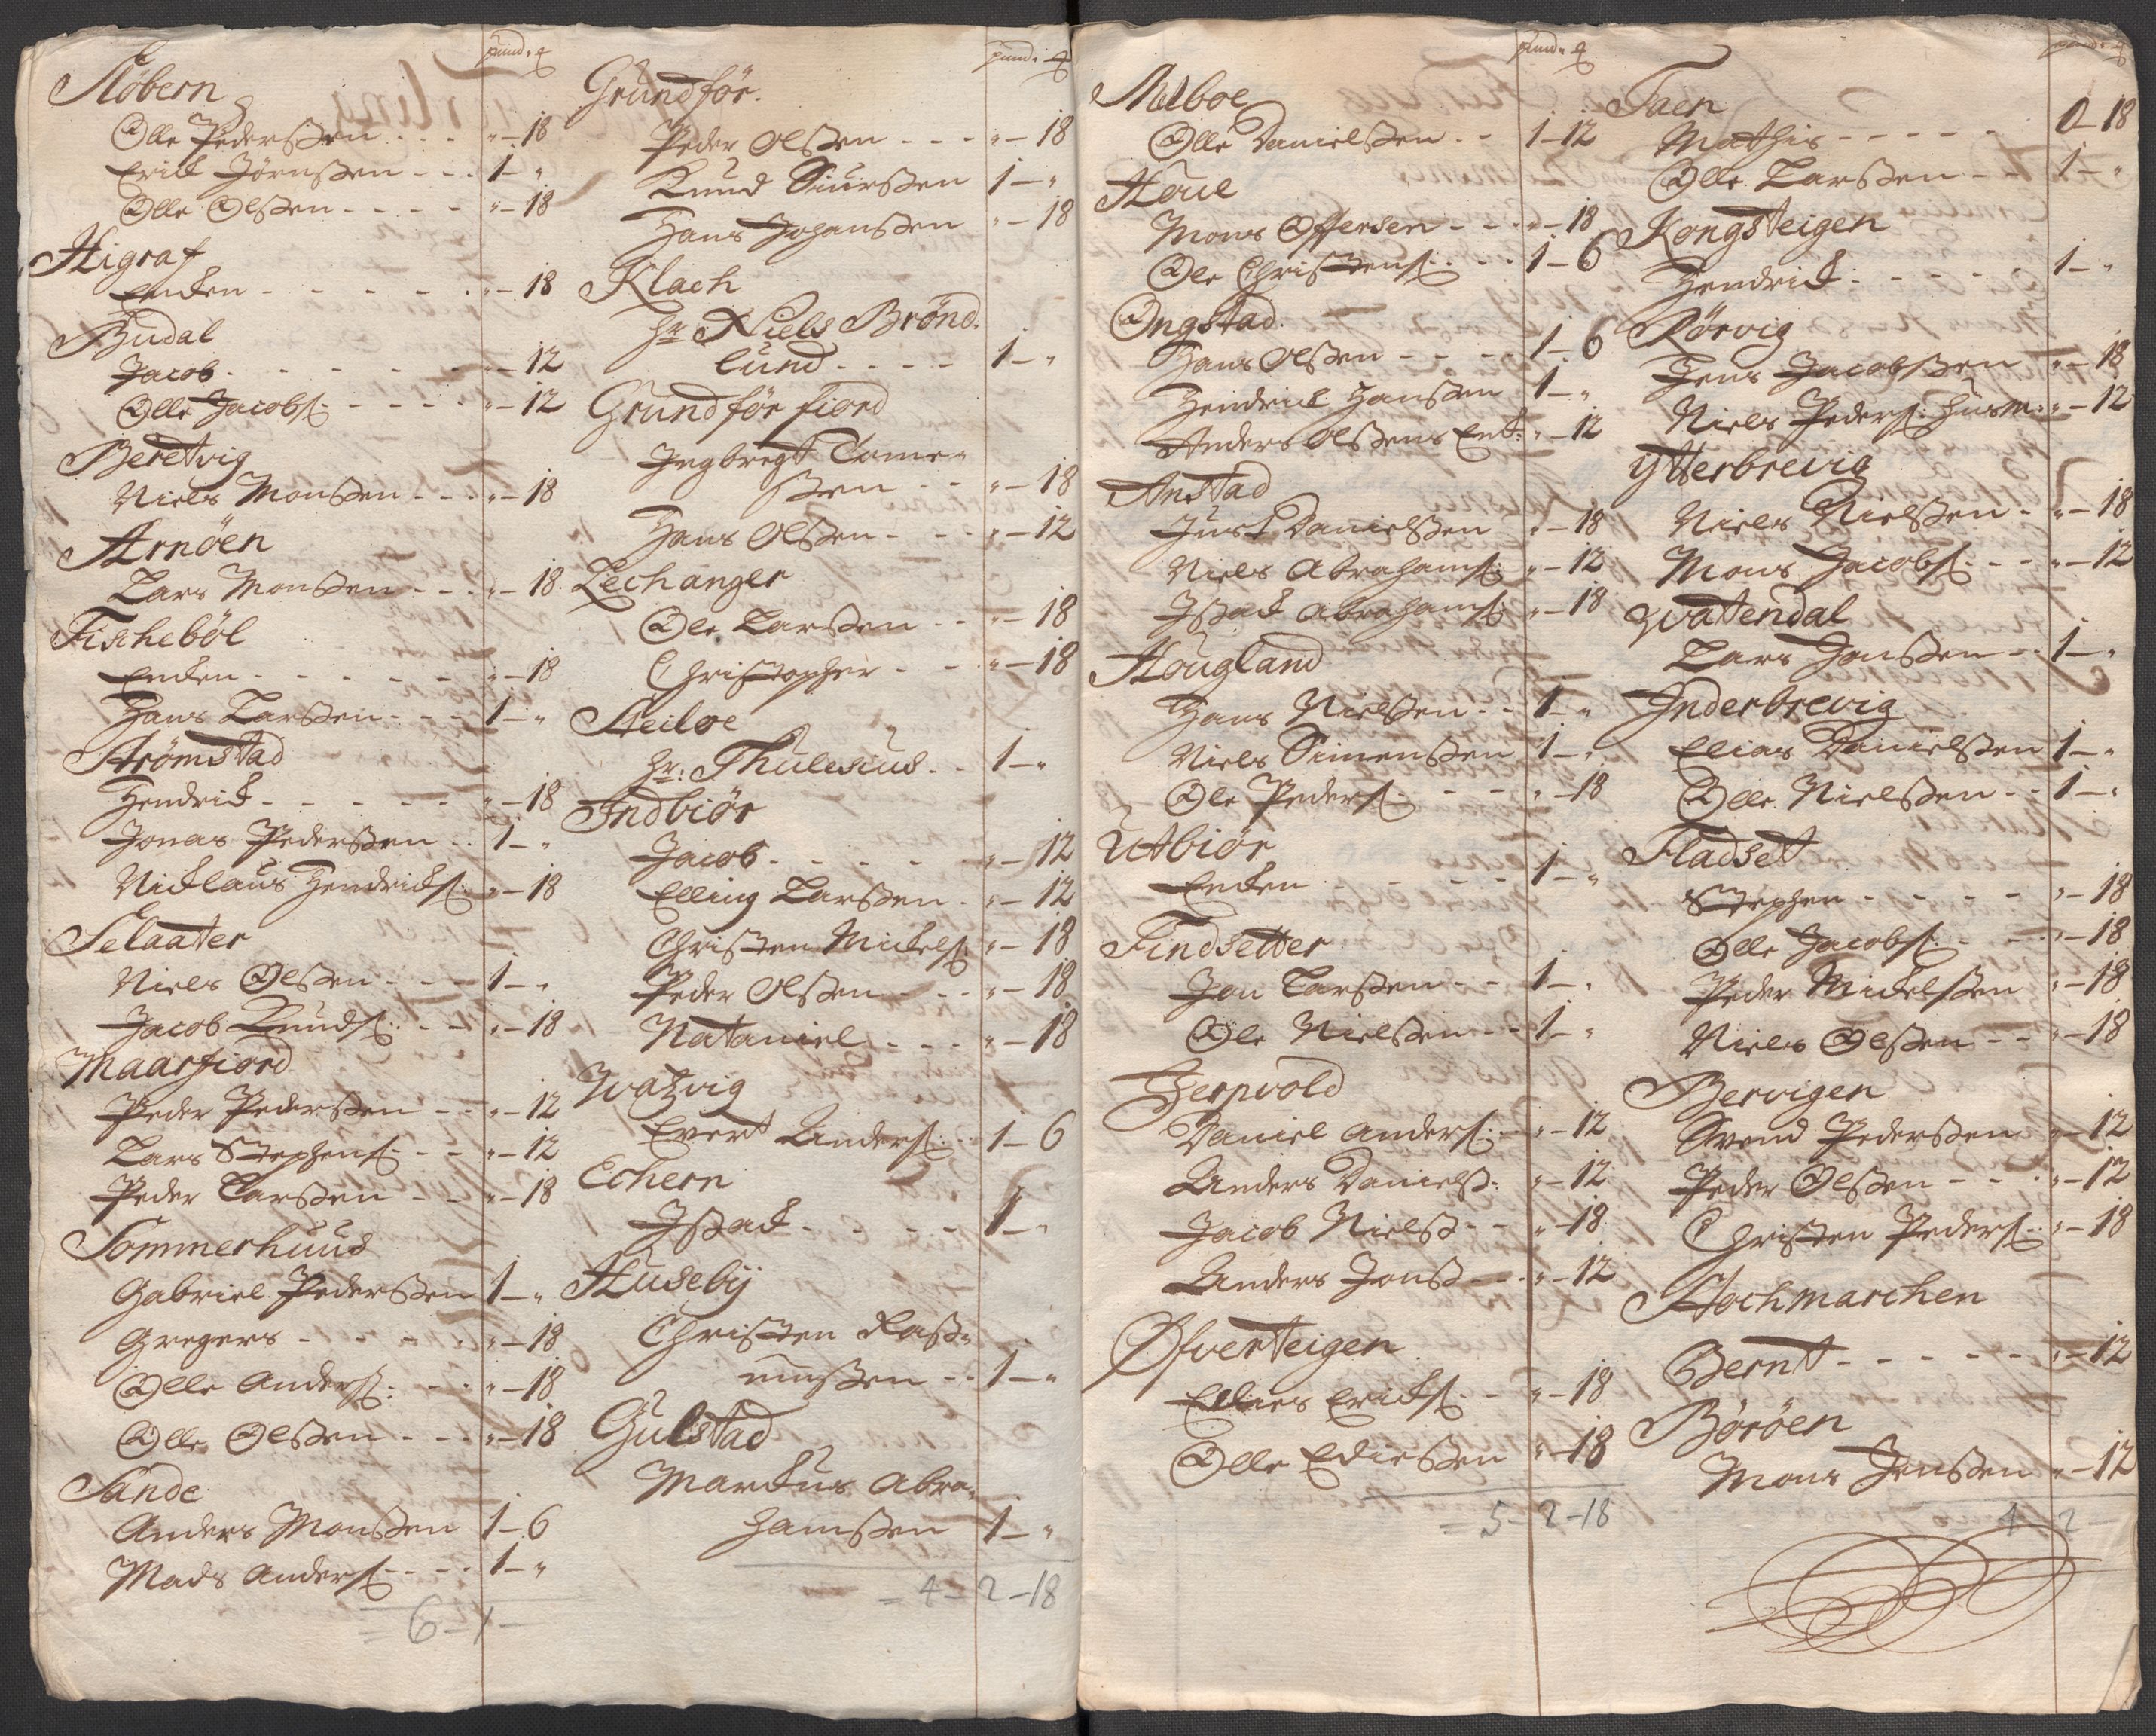 pund. ℔
Støbern
Olle Pederssen - - - „ - 18
Erick Jörnssen - - . 1 - „
Olle Olssen - - - - „ - 18
Higraf
Encken - - - - - „ - 18
Budal
Jacob - - - - - „ - 12
Olle Jacobs: - - - - „ - 12
Beretvig
Niels Monssen - - - „ - 18
Arnöen
Lars Monssen - - - „ - 18.
Fischeböl
Encken - - - - - „ - 18
Hans Larssen - - - 1 - „
Strömstad
Hendrick - - - - - „ - 18
Jonas Pederssen . . 1 - „
Nicklaus Hendricks: „ - 18
Selaater
Niels Olssen - - - 1 - „
Jacob Knuds: - - „ - 18
Maarfiord
Peder Pederssen - - „ - 12
Lars Stephens: - - „ - 12
Peder Larssen - - „ - 18
Sommerhuus
Gabriel Pederssen 1 - „
Gregers - - - - „ - 18
Olle Anders: - - „ - 18
Olle Olssen - - - „ - 18
Sande
Anders Monssen 1 - 6
Mads Anders: - - - 1 - „
= 6 - 1 -
pund. ℔
Grundför.
Peder Olssen - - - „ - 18
Knud Siurssen 1 - „
Hans Johanssen „ - 18
Klach
Hr Niels Brönd-
lund - - - - 1 - „
Grundför fiord
Ingbregt Tome-
ssen - - „ - 18
Hans Olssen - - - „ - 12
Lechanger
Ole Larssen - - „ - 18
Christopher - - „ - 18
Steiloe
Hr: Thulesius - - 1 - „
Indbiör
Jacob - - - - - „ - 12
Elling Larssen - „ - 12
Christen Mickels: „ - 18
Peder Olssen - - - „ - 18
Nataniel - - - „ - 18
Watzvig
Evert Anders: - 1 - 6
Echern
Issack - - - - 1 - „
Huseby
Christen Rass-
mussen - - 1 - „
Gulstad
Marckus Abra-
hamssen 1 - „
= 4 - 2 - 18
pund. ℔
Melboe
Olle Danielssen - - 1 - 12
Houe
Mons Offersen - - - „ - 18
Ole Christens: - - 1 - 6
Ongstad
Hans Olssen - - - - 1 - 6
Hendrick Hanssen 1 - „
Anders Olssens Enk: „ - 12
Anstad
Just Danielssen „ - 18
Niels Abrahams: „ - 12
Issack Abrahams: „ - 18
Hougland
Hans Nielssen - - 1 - „
Niels Simenssen 1 - „
Ole Peders: - - - „ - 18
Utbiör
Encken - - - - 1 - „
Findsetter
Jon Larssen - - 1 - „
Ole Nielssen - - 1 - „
Herpvold
Daniel Anders: - „ - 12
Anders Danielss: „ - 12
Jacob Nielss - - „ - 18
Anders Jonss - - „ - 12
Øfverteigen
Edies Ericks: - - „ - 18
Olle Ediessen „ - 18
= 5 - 2 - 18
pund. ℔
Taen
Mathis - - - - - 0 - 18
Olle Larssen - - 1 - „
Kongsteigen
Hendrick - - - - 1 - „
Rörvig
Jens Jacobssen „ - 18
Niels Peders: Husm: „ - 12
Ytterbrevig
Niels Nielssen - „ - 18
Mons Jacobs: - - „ - 12
Watendal
Lars Jonssen - - 1 - „
Inderbrevig
Elias Danielssen 1 - „
Olle Nielssen - - 1 - „
Fladset
Stephen - - - - „ - 18
Olle Jacobs: - - „ - 18
Peder Mickelssen „ - 18
Niels Olssen - - „ - 18
Bervigen
Svend Pederssen „ - 12
Peder Olssen - - „ - 12
Christen Peders: „ - 18
Stochmarchen
Bernt - - - - - „ - 12
Böröen
Mons Jenssen „ - 12
= 4 - 2 -